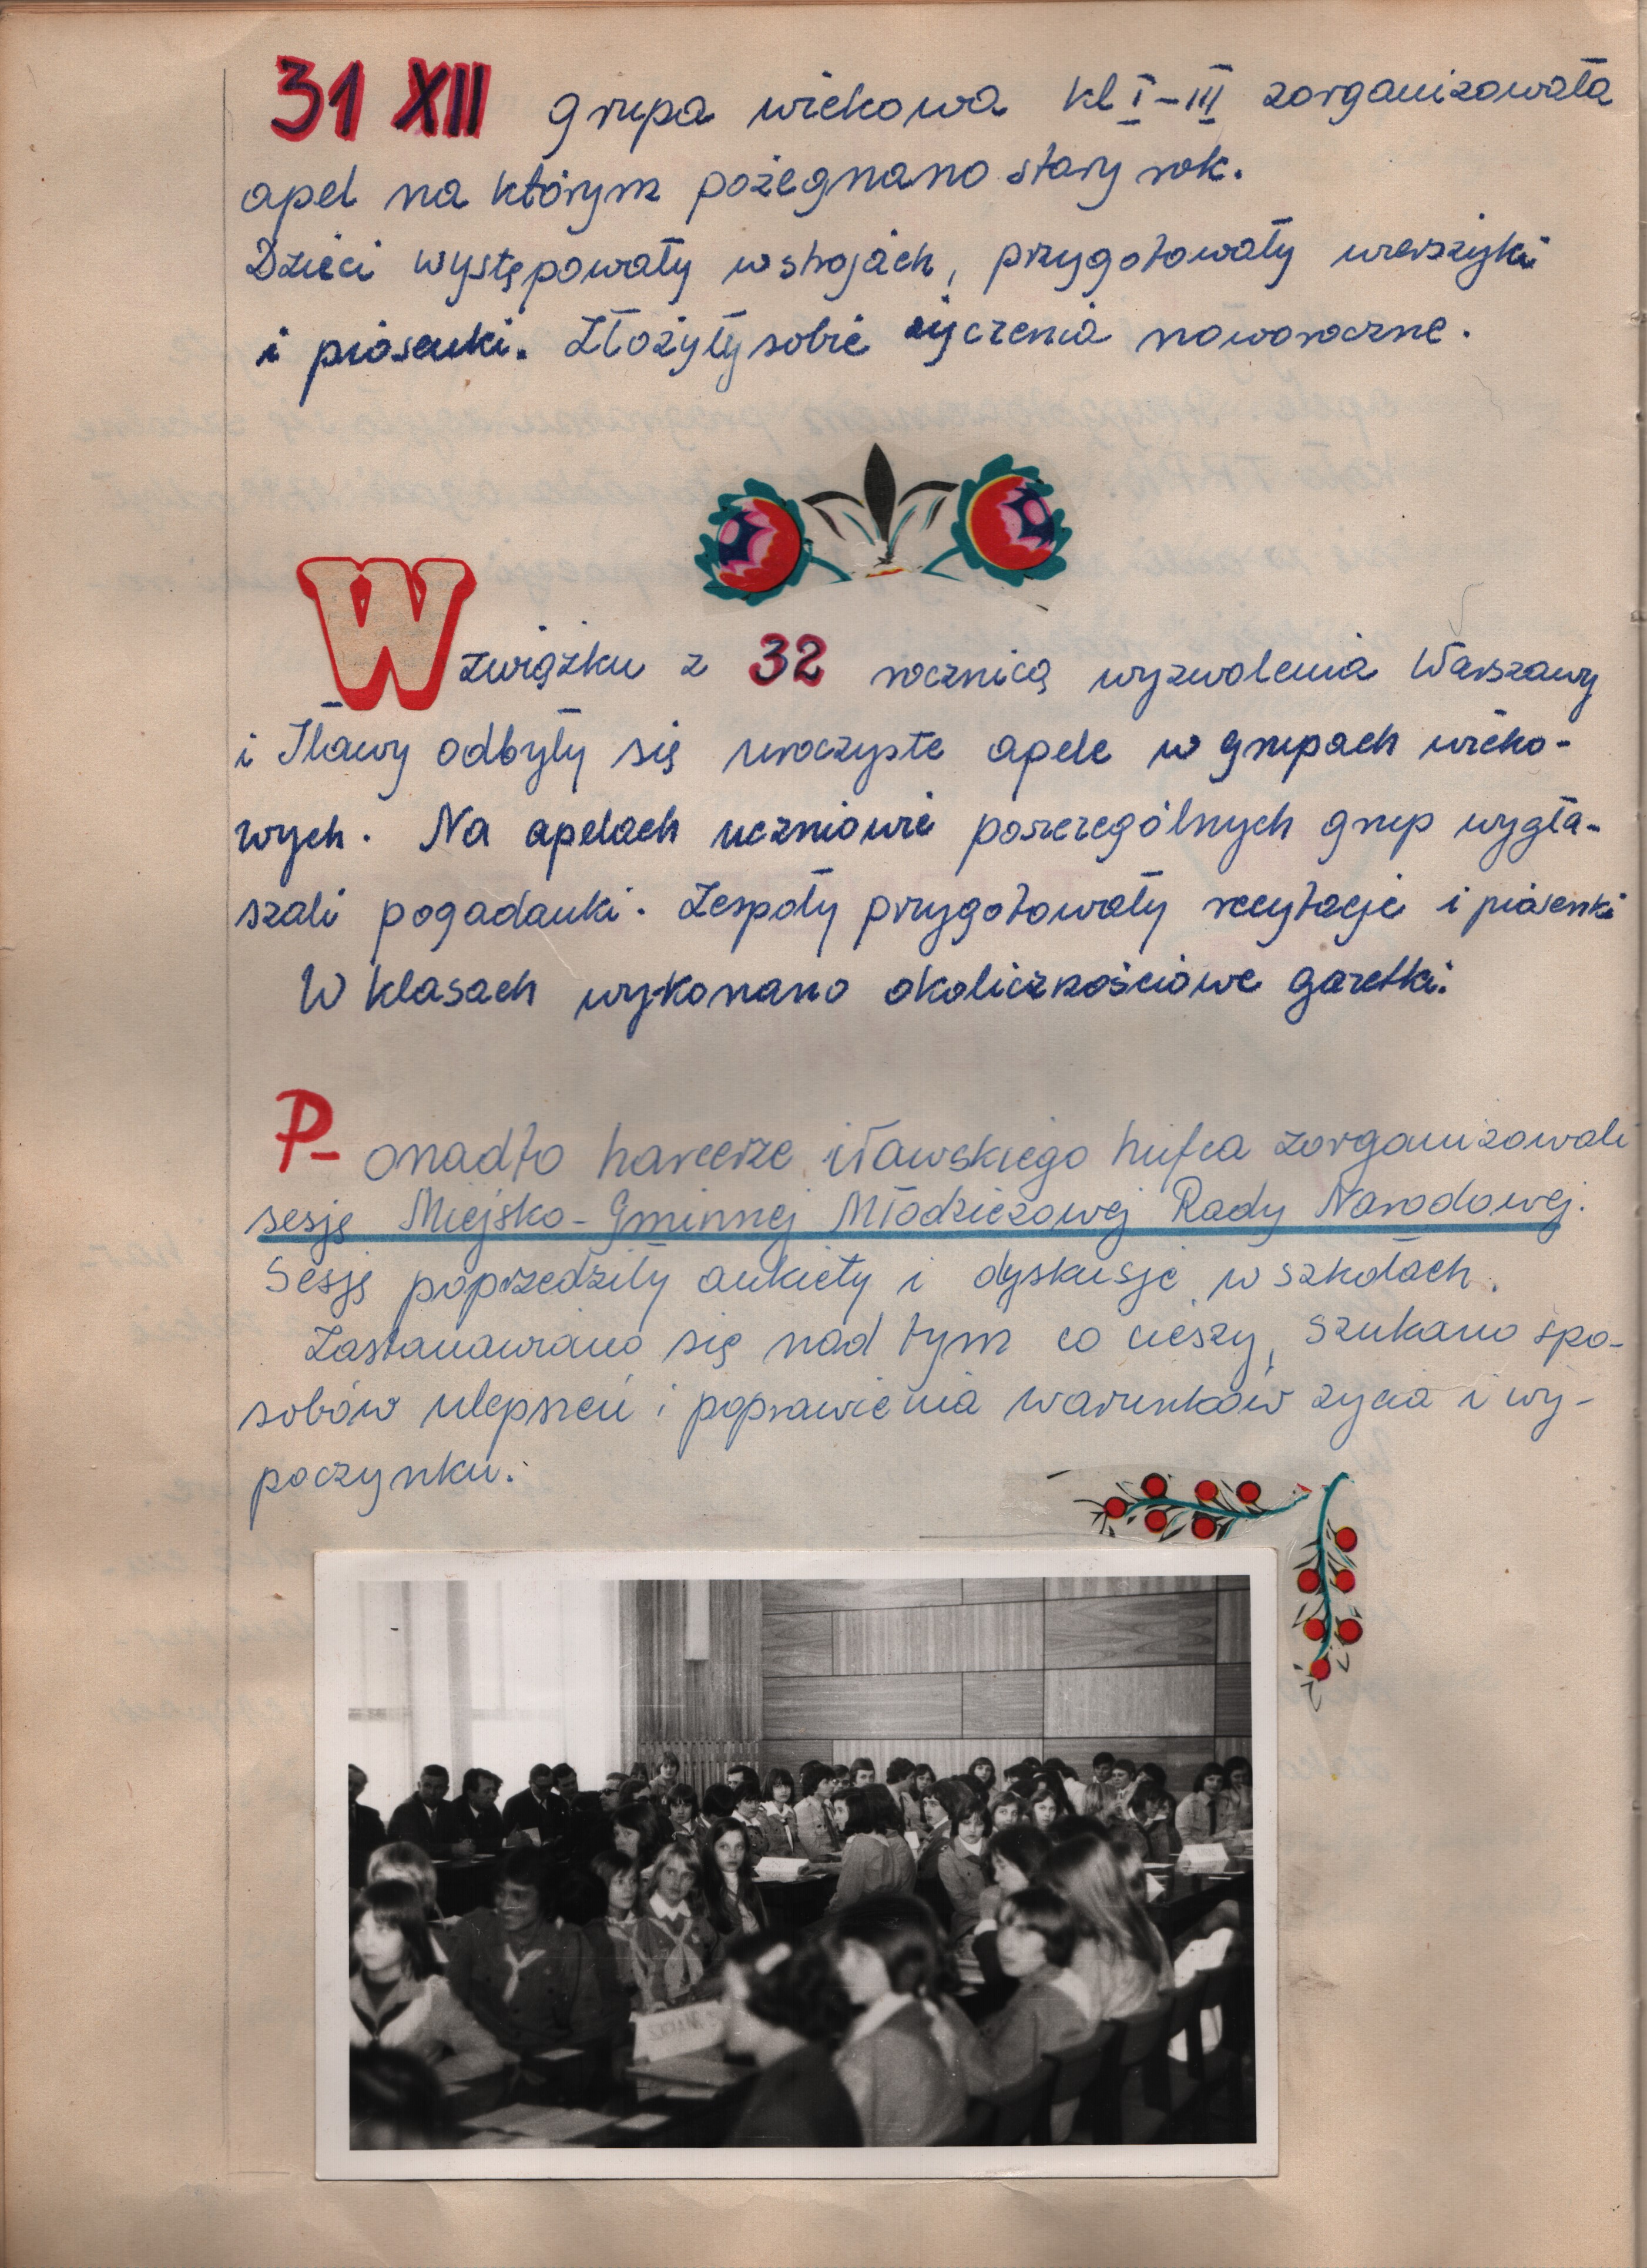 31 XII grupa wiekowa kl I-III zorganizowała
apel na którym pożegnano stary rok.
Dzieci występowały w strojach, przygotowały wierszyki
i piosenki. Złożyły sobie życzenia noworoczne.
W związku z 32 rocznicą wyzwolenia Warszawy
i Iławy odbyły się uroczyste apele w grupach wieko-
wych. Na apelach uczniowie poszczególnych grup wygła-
szali pogadanki. Zespoły przygotowały recytacje i piosenki
W klasach wykonano okolicznościowe gazetki.
P-onadto harcerze iławskiego hufca zorganizowali
sesję Miejsko-Gminnej Młodzieżowej Rady Narodowej.
Sesję poprzedziły ankiety i dyskusje w szkołach.
Zastanawiano się nad tym co cieszy, szukano spo-
sobów ulepszeń i poprawienia warunków życia i wy-
poczynku.